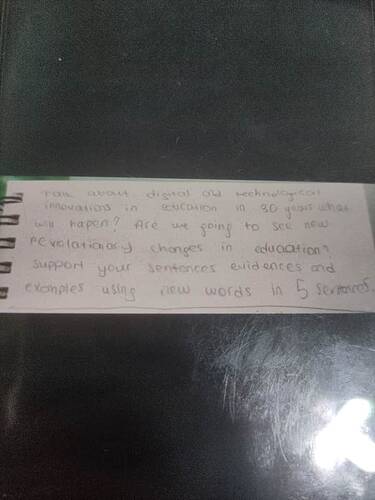 Talk about digital and technological
innovations in education in 30 years what
will happen? Are we going to see new
revolationary changes in education?
support your sentences evidences and
examples using new words in 5 sentences.